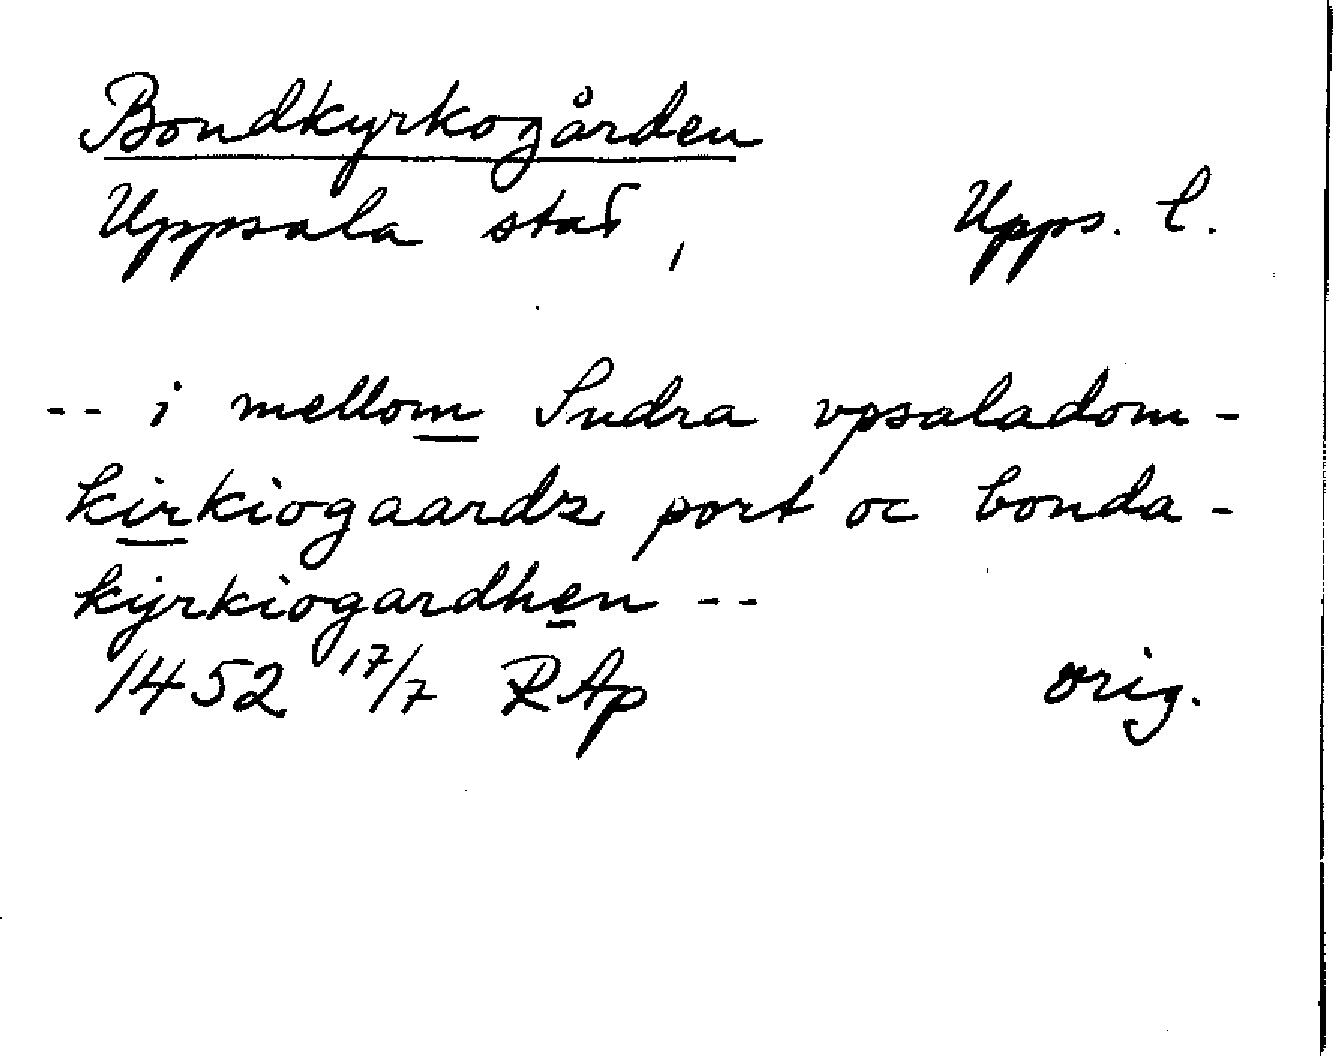 Bondkyrkogården
Uppsala stad, Upps. l.
-- i mellom Sudra vpsaladom-
kirkiogaardz port oc bonda-
kyrkiogardhen --
1452 17/7 RAp orig.